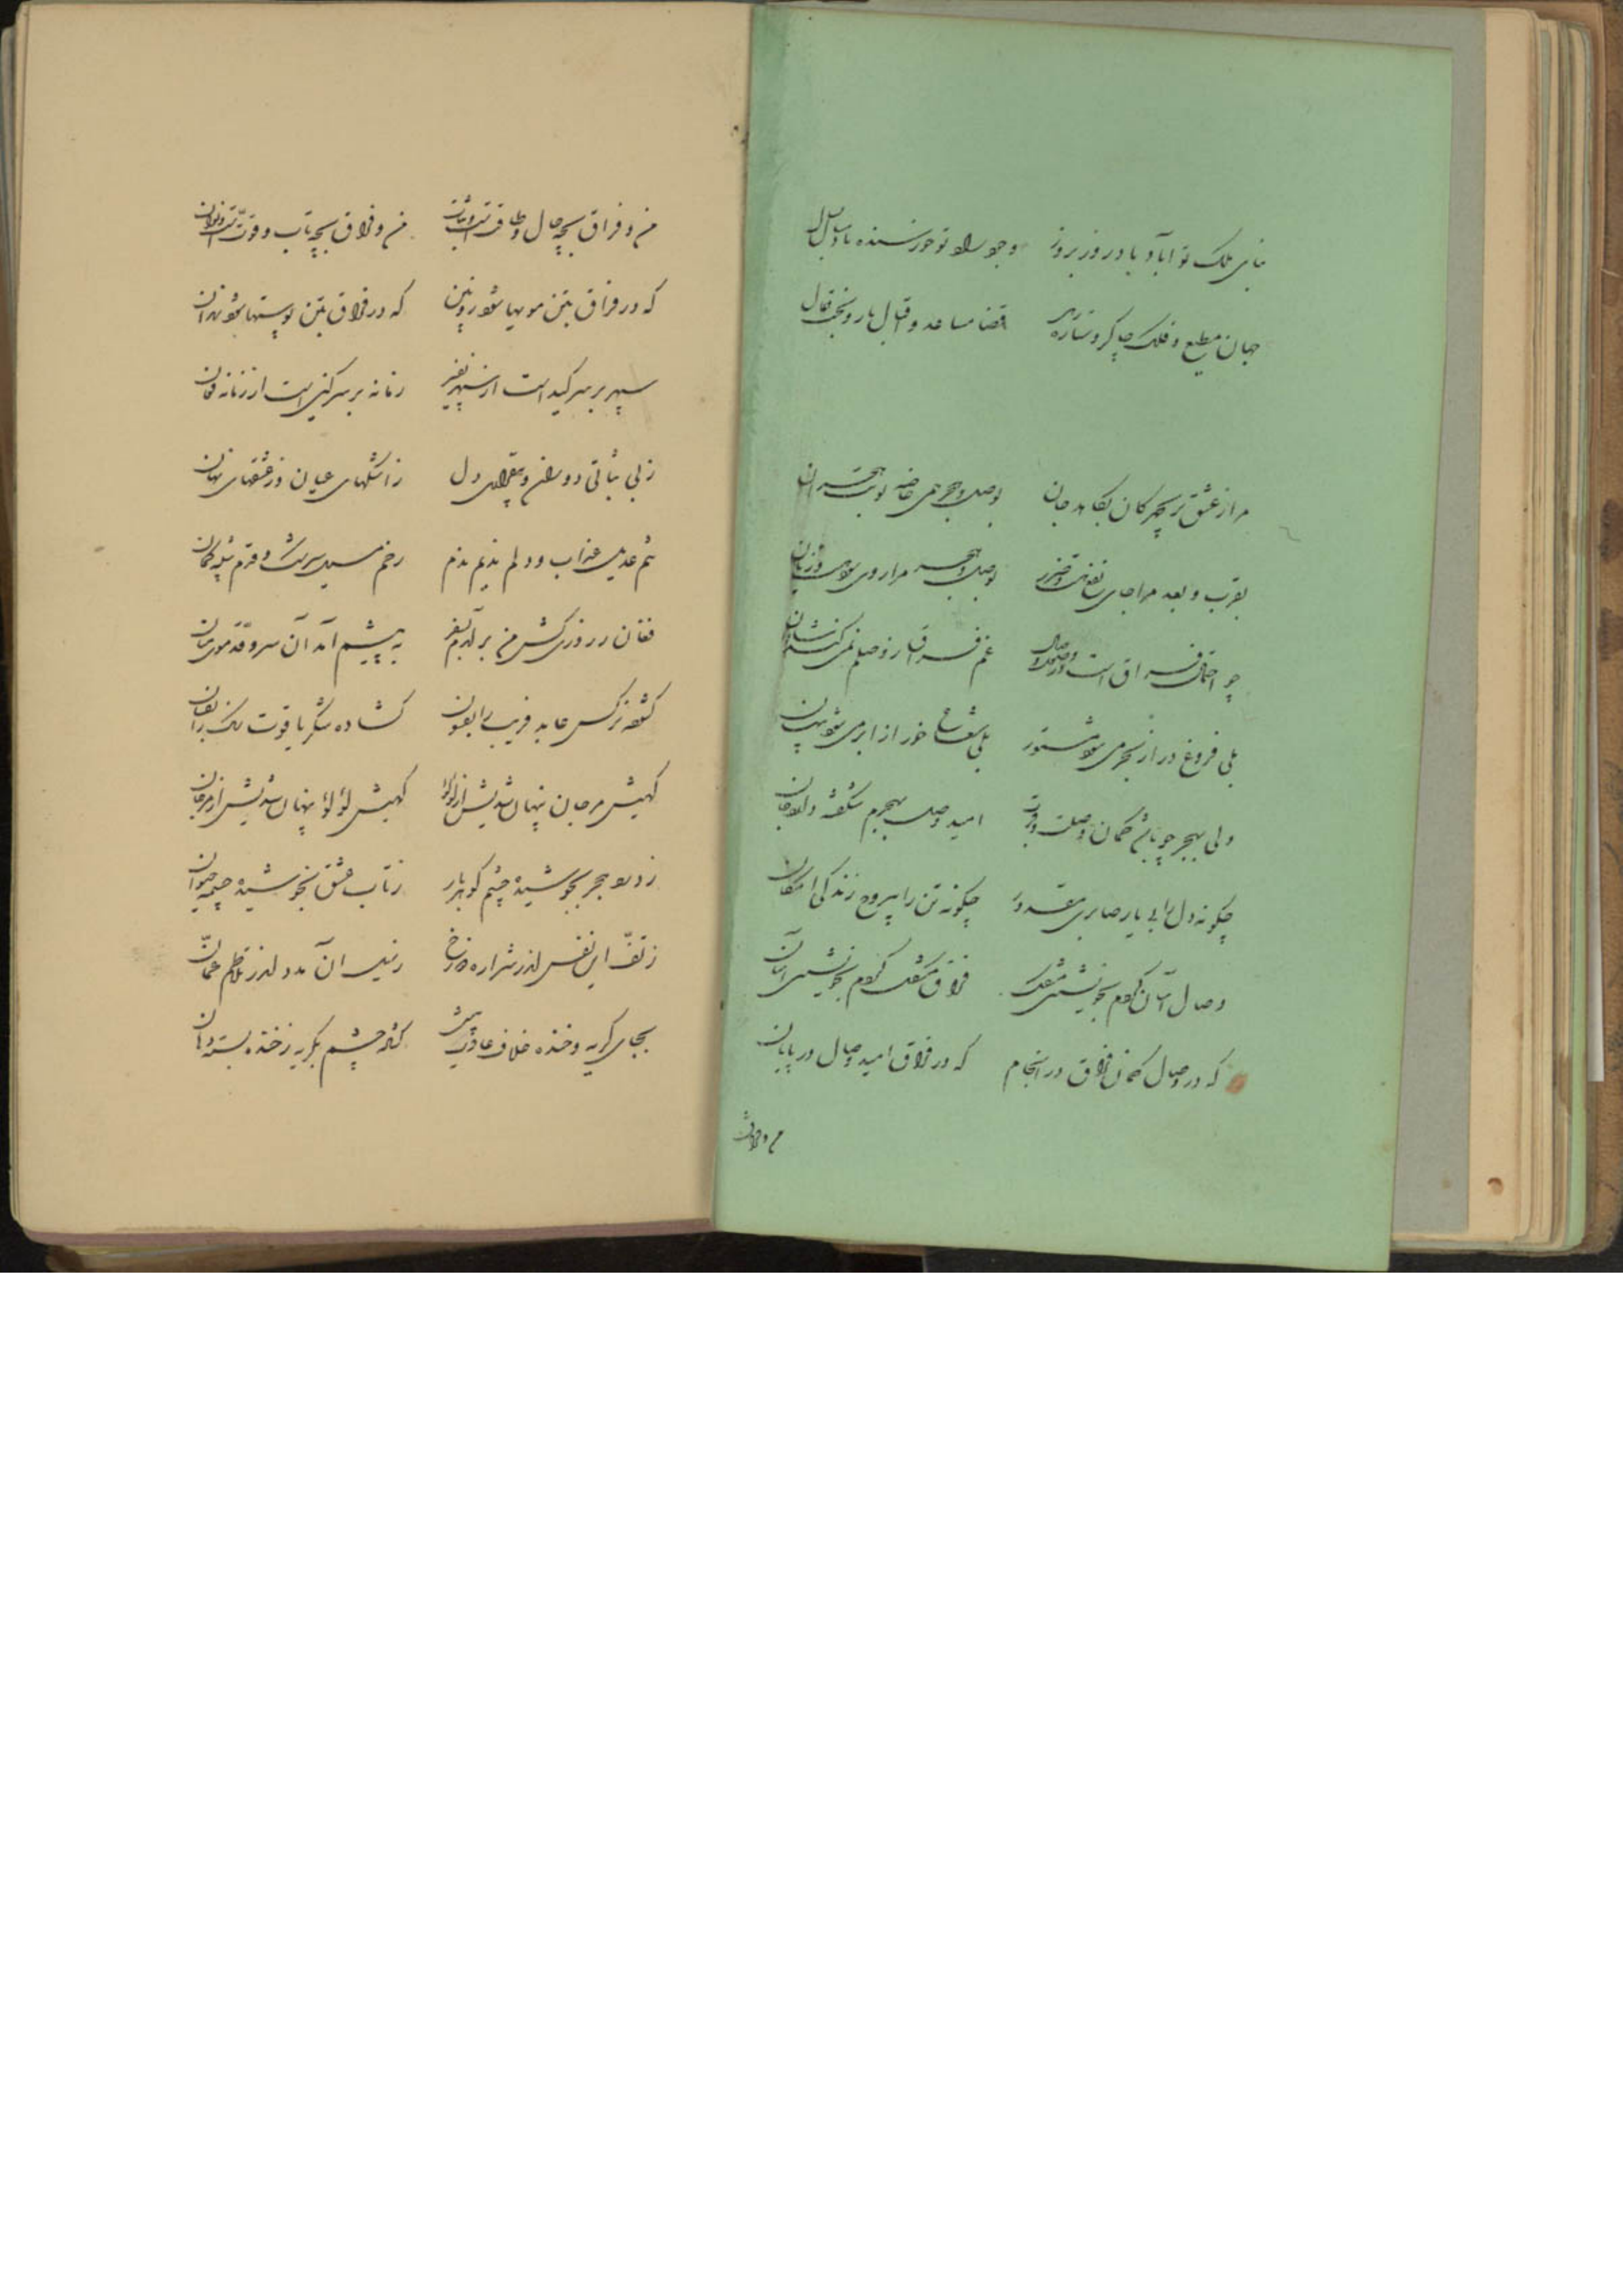 بنای ملک تو آباد باد روز بروز وجود تو خورسند باد سال بسال
جهان مطیع و فلک چاکر و ستاره رهی قضا مساعد و اقبال یار و بخت بفال
مرا ز عشق پریچهرکان بکاهد جان بوصل و هجر همی خاصه نوبت هجران
بقرب و بعد مرا جای نفع هست ضرر بوصل و هجر مرا روی سود هست زیان
چو احتمال فراق است در وصال غم فراق ز وصلم نمی کند شادان
بلی فروغ در از بحر می شود مستور بلی شعاع خور از ابر می شود پنهان
ولی بهجر چو باشد کمان وصلت دوست امید وصل بهجرم شکفته دارد جان
چکونه دل را بی یار صابری مقدور چکونه تن را بیروح زندکی امکان
وصال آسان کردم بخویشتن مشکل فراق مشکل کردم بخویشتن آسان
که در وصال کمان فراق در انجام که در فراق امید وصال در پایان
من و فراق
من و فراق بچه حال و طاقت است و ثبات من و فراق بچه تاب و قوت است و توان
که در فراق بتن مویها شود زوبین که در فراق بتن پوستها شود زندان
سپهر بر سر کید است از سپهر نفیر زمانه بر سر کین است از زمانه فغان
ز بی ثباتی دوران و بیقراری دل ز اشکهای عیان و ز عشقهای نهان
تنم عدیل عذاب و دلم ندیم ندم رخم سرشک و قدم کمان
فغان در روزی کش من برآمدم بسفر به پیشم آمد آن سروقد موی میان
کشفته نرکس عابد فریب را بفسون کشاده شکر یاقوت رنک را بفغان
کهیش مرجان پنهان شدیش از لؤلؤ کهیش لؤلؤ پنهان شدیش از مرجان
ز دود هجر بجوشیده چشم کوهربار ز تاب عشق بخوشیده چشمه حیوان
ز تف این نفس اندر شراره دوزخ ز سیل آن مدد اندر تلاطم عمان
بجای کریه و خنده خلاف عادت خویش کشاد چشم بکریه ز خنده بست دهان